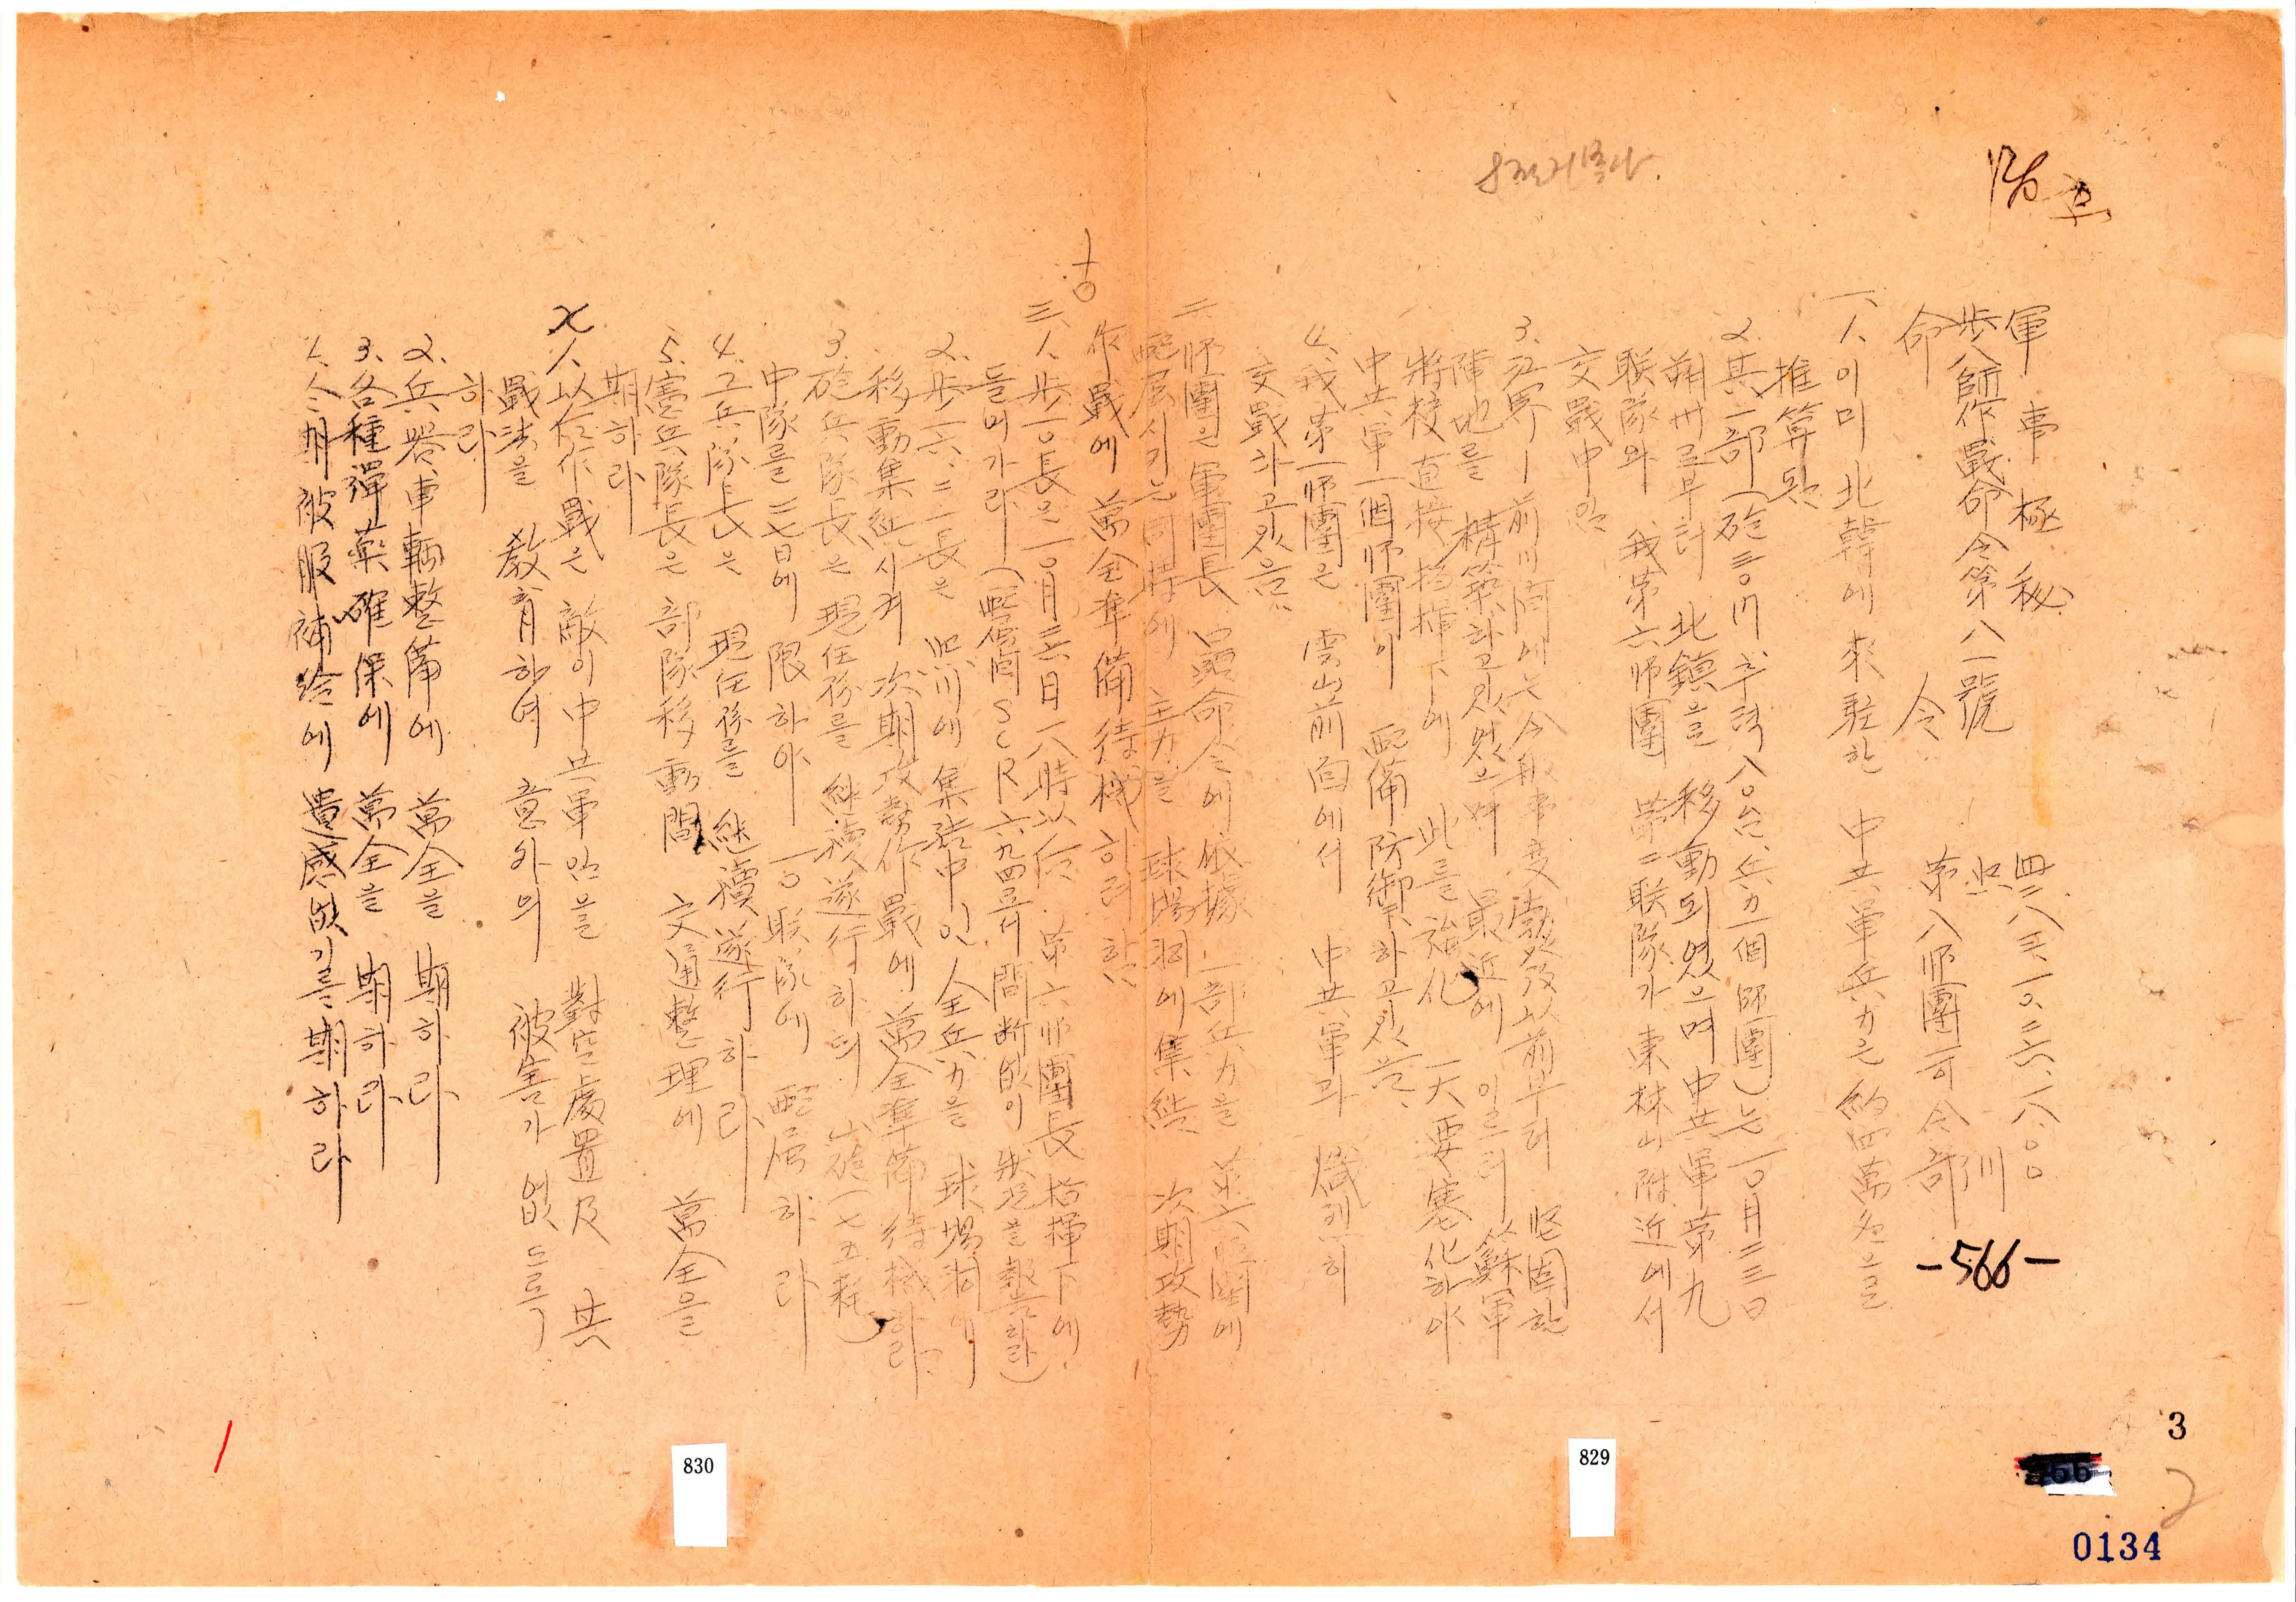 軍事極秘
四二八三、一〇、二六、一八、〇〇
步八師作戰命令第八一號
命令
第八師團司令部
-566-
一、1. 이미 北韓에 來駐한 中共軍兵力은 約四萬名으로
推算됨
2. 其一部(砲三〇門 우락 八〇台 兵力一個師團)는 一〇月二三日
朔州로부터 北鎭을 移動되였으며 中共軍第九
联隊와 我第六師團 第二联隊가 東林山附近에서
交戰中임
3. 江界ー前川間에는 今般事變勃發以前부터 堅固한
陣地를 構築하고 있었으며 最近에 이르러 蘇軍
將校直接指揮下에 此를 強化 一大要塞化하야
中共軍一個師團이 配備防御하고있음
4. 我第一師團은 雲山前面에서 中共軍과 熾烈히
交戰하고있음
二、師團은 軍團長 口頭命令에 依據 一部兵力을 第六師團에
配属시키는同時에 主力을 球場洞에 集結 次期攻勢
作戰에 萬全準備待機하려 함
三、1. 步一〇長은 一〇月二六日 一八時以后 第六師團長指揮下에
들어가라 (配属間 SCR 六九四로서 間断없이 狀況을 報告하라)
2. 步一六、二一長은 集結中인 全兵力을 球場洞에
移動集結시켜 次期攻勢作戰에 萬全準備待機하라
3. 砲兵隊長은 現任務를 継續遂行하며 山砲(七五粍)
中隊를 二七日에 限하야 一〇联隊에 配属하라
4. 工兵隊長은 現任務를 継續遂行하라
5. 憲兵隊長은 部隊移動間 交通整理에 萬全을
期하라
1. 以后作戰은 敵이 中共軍임을 對空處置及 共
戰法을 敎育하여 意外의 被害가 없도록
하라
2. 兵器車輛整備에 萬全을 期하라
3. 各種彈藥確保에 萬全을 期하라
4. 冬期被服補給에 遺感없기를 期하라
830
829
3
2
0134